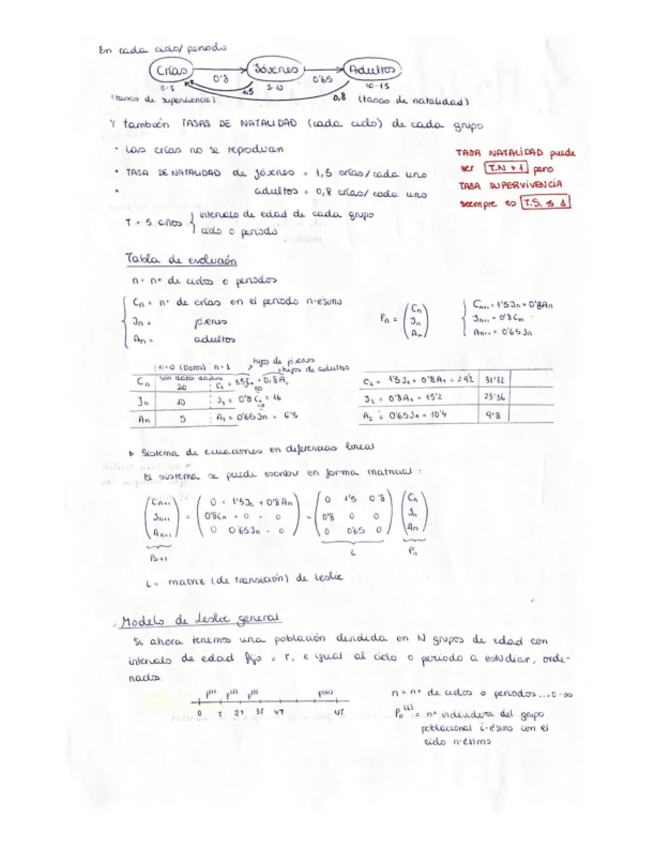 En cada ciclo/periodo
Crías Jóvenes Adultos
0'8 0'65
0-5 5-10 10-15
1,5
(tasas de supervivencia) 0,8 (tasas de natalidad)
Y también TASAS DE NATALIDAD (cada ciclo) de cada grupo
· Las crías no se reproducen
· TASA DE NATALIDAD de jóvenes = 1,5 crías/cada uno
· adultos = 0,8 crías/cada uno
TASA NATALIDAD puede
ser T.N > 1 pero
TASA SUPERVIVENCIA
siempre es T.S. ≤ 1
T = 5 años { intervalo de edad de cada grupo
ciclo o periodo
Tabla de evolución
n = nº de ciclos o periodos
Cn = nº de crías en el periodo n-ésimo
Jn = jóvenes
An = adultos
Pn = (Cn Jn An)
Cn+1 = 1'5Jn + 0'8An
Jn+1 = 0'8Cn
An+1 = 0'65Jn
n=0 (Datos) n=1 hijos de jóvenes
hijos de adultos
Cn 20
Jn 10 J1 = 0'8 = 16
An 5 A1 = 0'65Jn = 6'5
C2 = 1'5J1 + 0'8A1 = 29'2 31'12
J2 = 0'8A1 = 15'2 23'36
A2 = 0'65J1 = 10'4 9'8
Sistema de ecuaciones en diferencias lineal
El sistema se puede escribir en forma matricial:
(Cn+1 Jn+1 An+1) = (0 + 1'5Jn + 0'8An
0'8Cn + 0 + 0
0 0'65Jn + 0) = (0 1'5 0'8
0'8 0 0
0 0'65 0) (Cn Jn An)
Pn+1 L Pn
L = matriz (de transición) de Leslie
Modelo de Leslie general
Si ahora tenemos una población dividida en N grupos de edad con
intervalo de edad fijo = r, e igual al ciclo o periodo a estudiar, orde-
nados.
P(1) P(2) P(3) P(N)
0 T 2T 3T 4T NT
n = nº de ciclos o periodos ... 0-∞
nº individuos del grupo
poblacional i-ésimo con el
ciclo n-ésimo